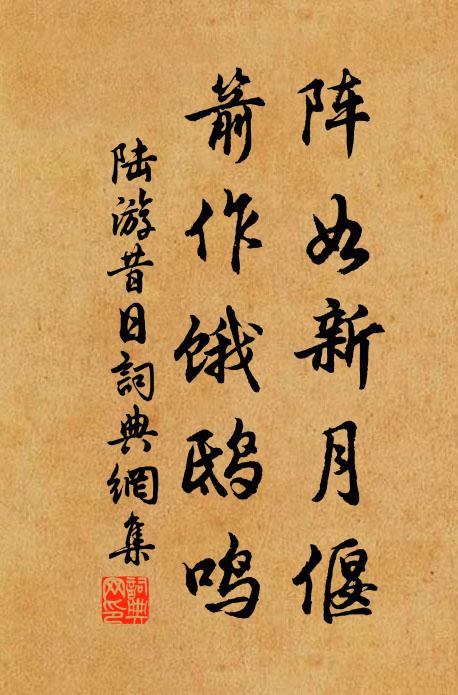 阵如新月偃
箭作饿鸱鸣
陆游昔日詞典網集
詞典
网印